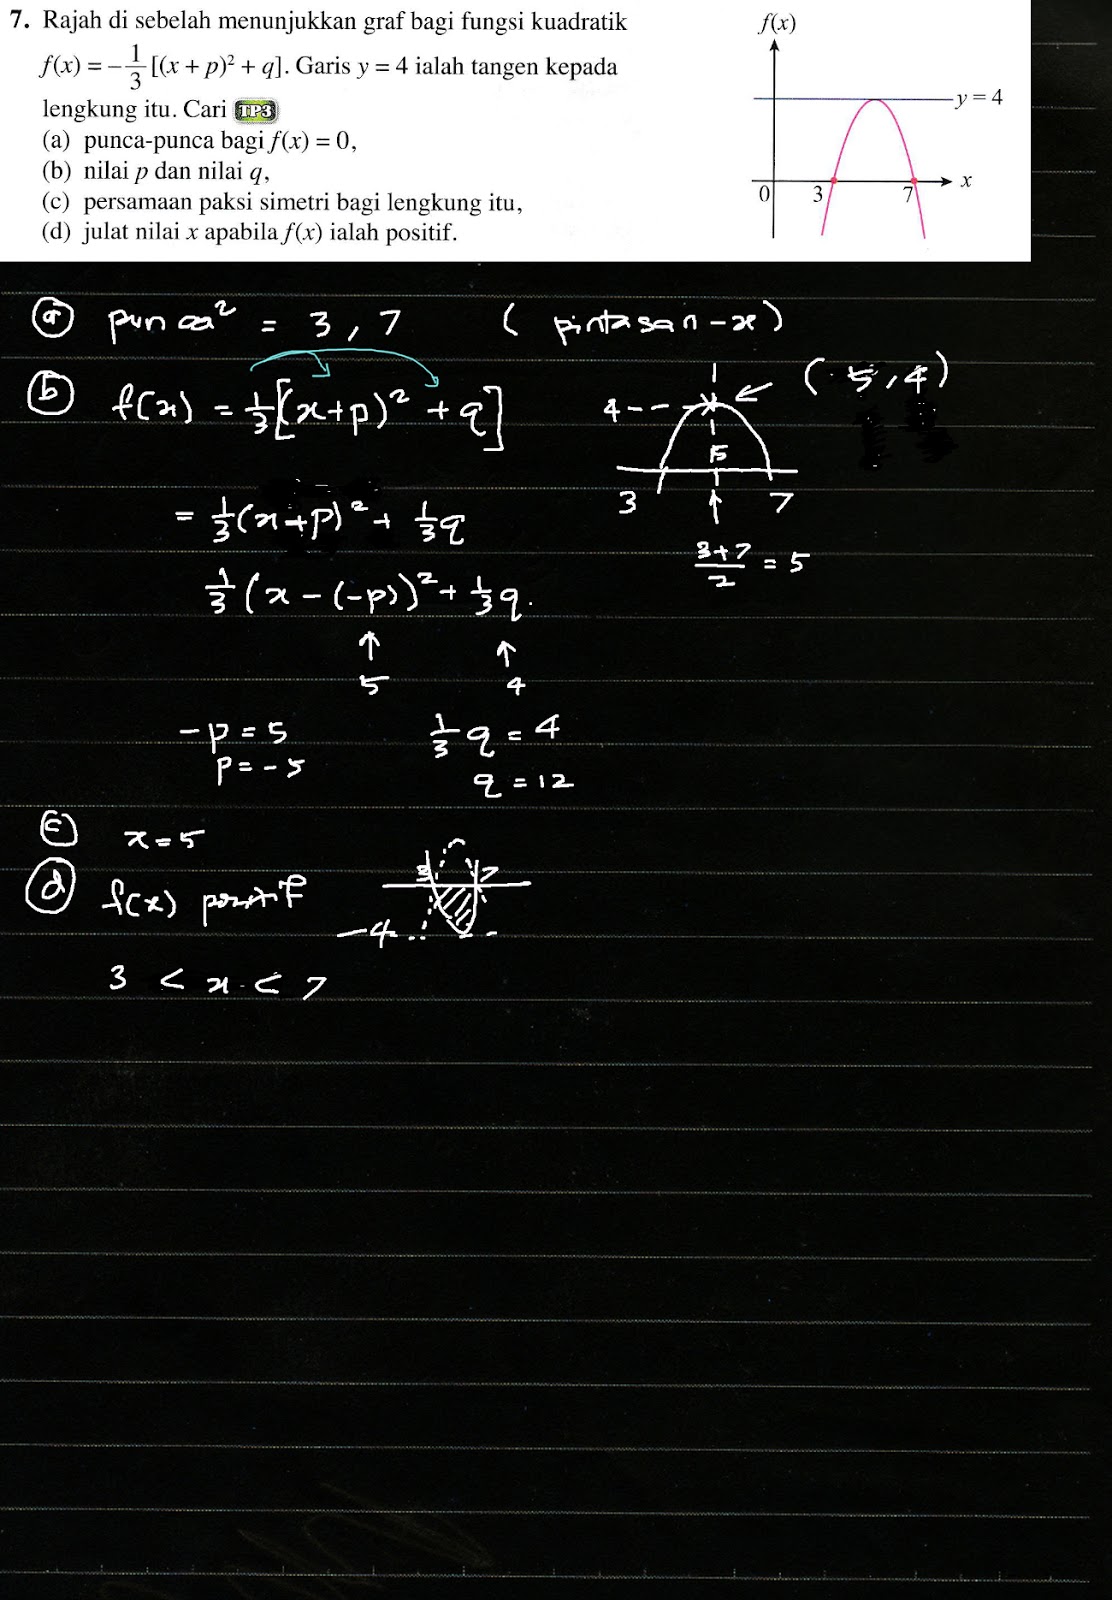 7. Rajah di sebelah menunjukkan graf bagi fungsi kuadratik
f(x) = -1/3 [(x + p)² + q]. Garis y = 4 ialah tangen kepada
lengkung itu. Cari TP3
(a) punca-punca bagi f(x) = 0,
(b) nilai p dan nilai q,
(c) persamaan paksi simetri bagi lengkung itu,
(d) julat nilai x apabila f(x) ialah positif.
f(x)
y = 4
0 3 7 x
(a) punca² = 3, 7 (pintasan-x)
(b) f(x) = 1/3[(x+p)² + q]
= 1/3(x+p)² + 1/3q
1/3(x-(-p))² + 1/3q.
↑ ↑
5 4
-p = 5 1/3 q = 4
p = -5 q = 12
4-- (5,4)
5
3 7
(3+7)/2 = 5
(c) x = 5
(d) f(x) positif
3 7
-4
3 < x < 7